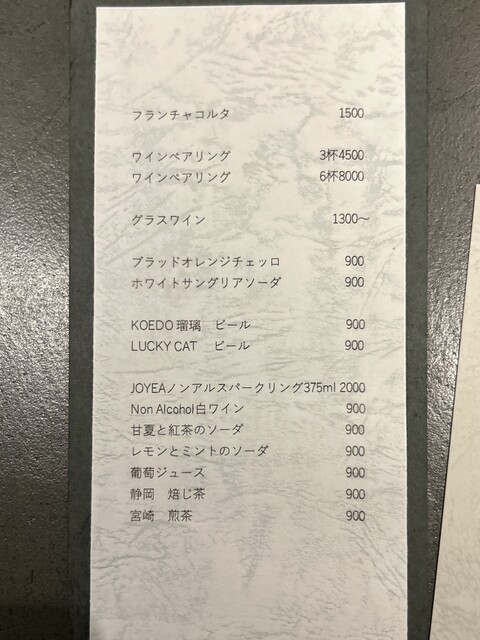 フランチャコルタ 1500
ワインペアリング 3杯4500
ワインペアリング 6杯8000
グラスワイン 1300〜
ブラッドオレンジチェッロ 900
ホワイトサングリアソーダ 900
KOEDO瑠璃 ビール 900
LUCKY CAT ビール 900
JOYEAノンアルスパークリング375ml 2000
Non Alcohol白ワイン 900
甘夏と紅茶のソーダ 900
レモンとミントのソーダ 900
葡萄ジュース 900
静岡 焙じ茶 900
宮崎 煎茶 900